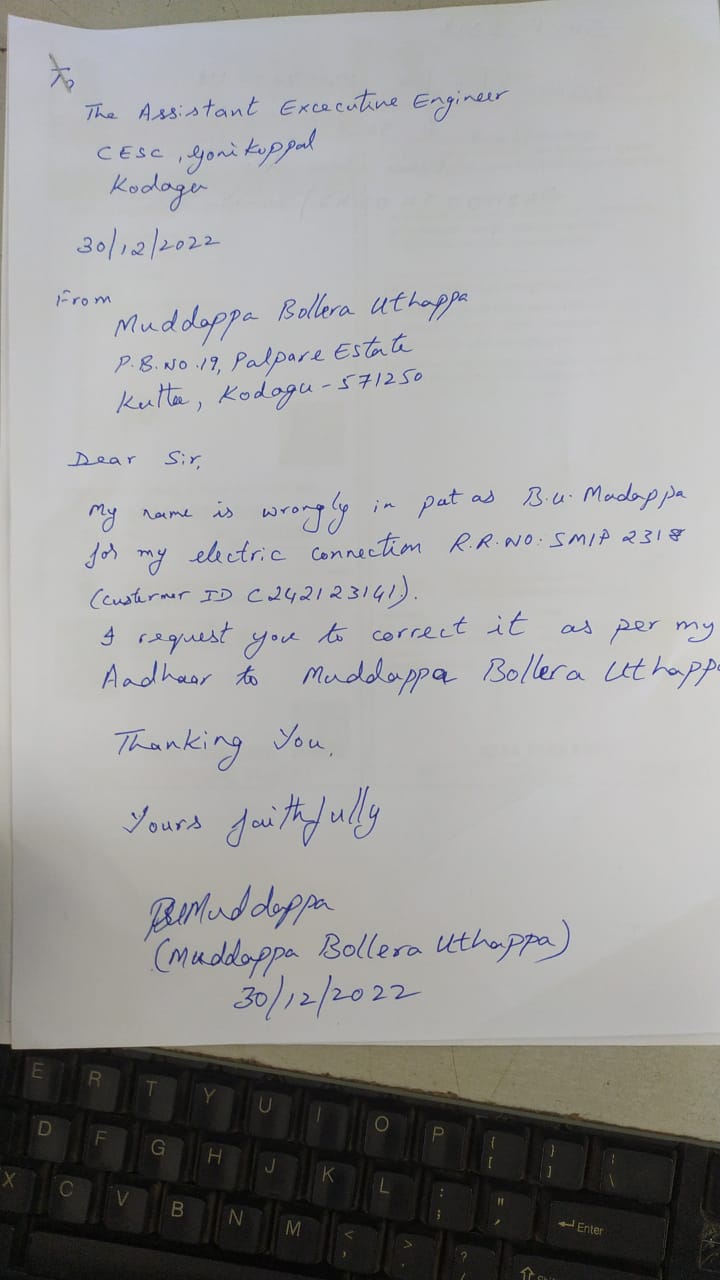 To
The Assistant Excecutive Engineer
CESC, Gonikoppal
Kodagu
30/12/2022
From
Muddappa Bollera Uthappa
P.B.No.19, Palpare Estate
Kutta, Kodagu-571250
Dear Sir,
My name is wrongly in put as B.U. Madappa
for my electric connection R.R.NO: SMIP 2318
(Custermer ID C242123141).
I request you to correct it as per my
Aadhaar to Muddappa Bollera Uthappa
Thanking You,
Yours faithfully
BUMuddappa
(Muddappa Bollera Uthappa)
30/12/2022
E R T Y U I O P { [ } ] | \
D F G H J K L : ; " ' Enter
X C V B N M < , > . ?